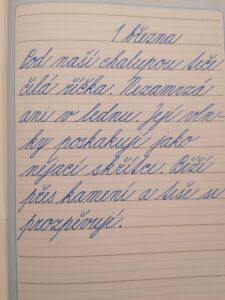 1 března
Pod naší chalupou teče
čilá říčka. Nezamrzá
ani v lednu. Její vln-
ky poskakují jako
nějací skřítci. Běží
přes kamení a tiše si
prozpěvují.